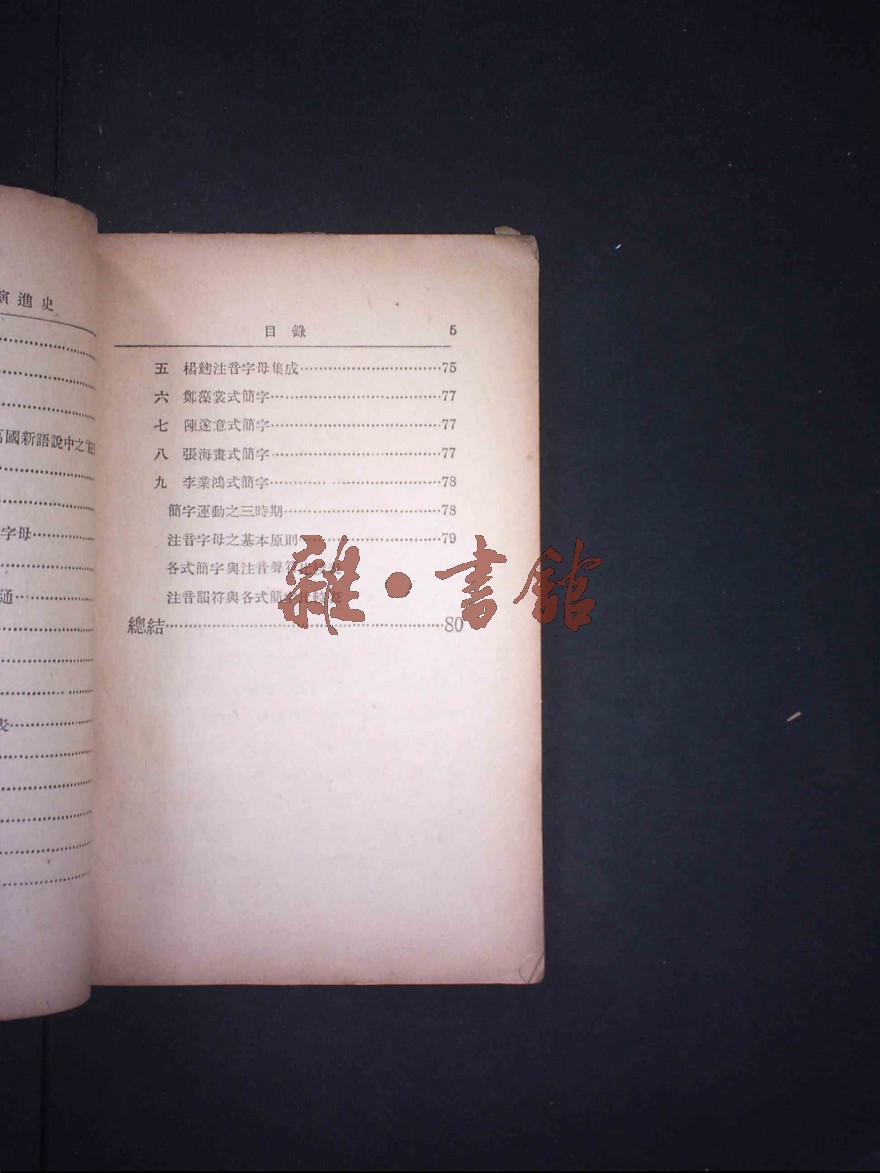 演進史
萬國新語說中之
字母
通
表
目錄 5
五 楊麴注音字母集成 75
六 鄭藻裳式簡字 77
七 陳遂意式簡字 77
八 張海畫式簡字 77
九 李業鴻式簡字 78
簡字運動之三時期 78
注音字母之基本原則 79
各式簡字與注音聲符
注音韻符與各式簡字
總結 80
雜·書館